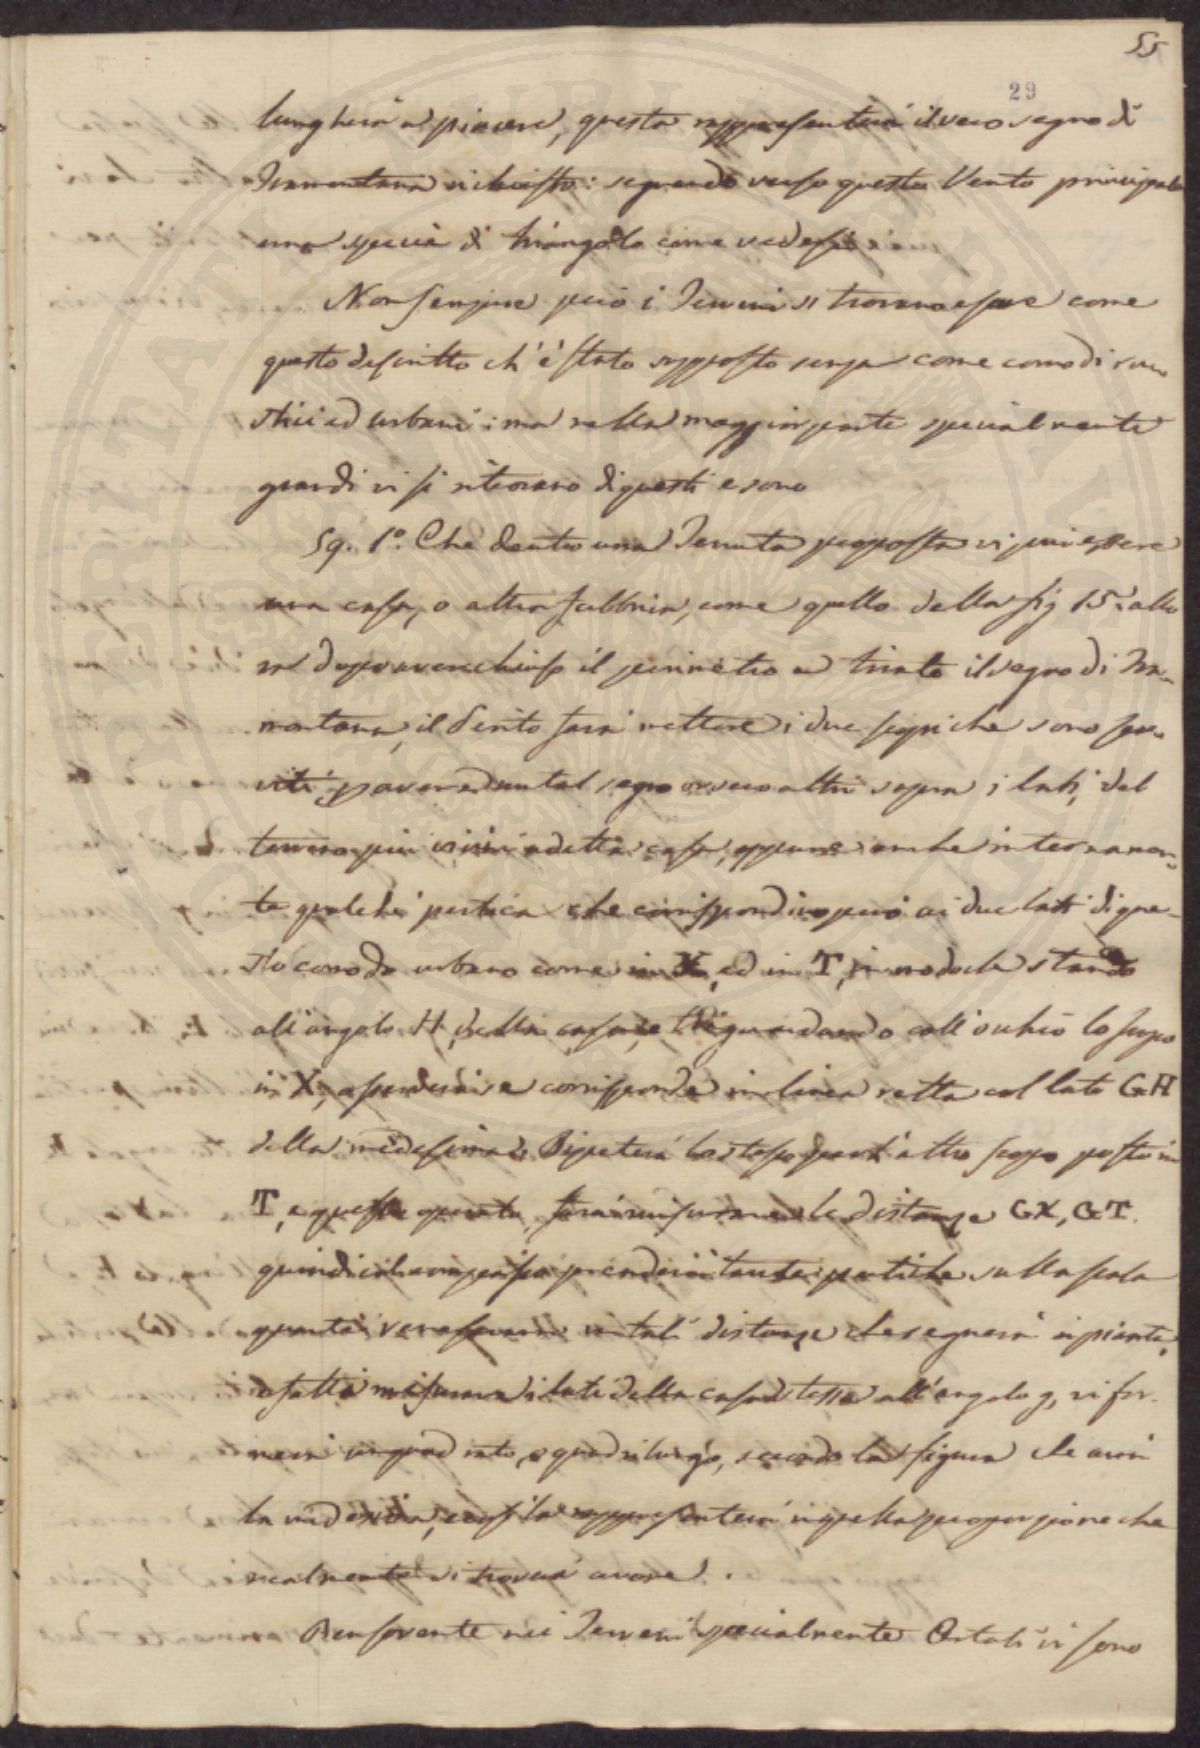 55
29
lunghezza a piacere, questa rappresenterà il vero segno di
Tramontana richiesto: segnando verso questo Vento principale
una specie di triangolo come vedesi
Non sempre però i Terreni si trovano essere come
questo descritto ch'è stato supposto senza come comodi rus
stici ed urbani: ma nella maggior parte specialmente
grandi vi si ritrovano di questi e sono
Sq. 1.° Che dentro una Tenuta proposta vi può essere
una casa, o altra fabbrica, come quello della fig 15 allo
ra dopo aver chiuso il perimetro e tirato il segno di Tra-
montana, il Perito farà mettere i due scopi che sono ser
viti p avere un tal segno ovvero altri sopra i lati, del
terreno più vicini a detta casa, oppure anche internamen-
te qualche pertica che corrispondino però ai due lati di que-
sto comodo urbano come in X, ed in T, in modo che stando
all'angolo H della casa, e traguardando coll'occhio lo scopo
in X, assicurarsi se corrisponde in linea retta col lato GH
della medesima. Ripeterà lo stesso quest'altro scopo posto in
T, e questo operato, farà misurare le distanze GX, GT.
quindi col compasso prenderà tante pertiche sulla scala
quante ve ne saranno in tali distanze che segnerà in pianta,
e fatti misurare i lati della casa stessa all'angolo g, vi for-
merà un quadrato, o quadrilungo, secondo la figura che avrà
la medesima, così la rappresenterà in quella proporzione che
realmente si troverà avere.
Ben sovente nei Terreni specialmente Ortali vi sono